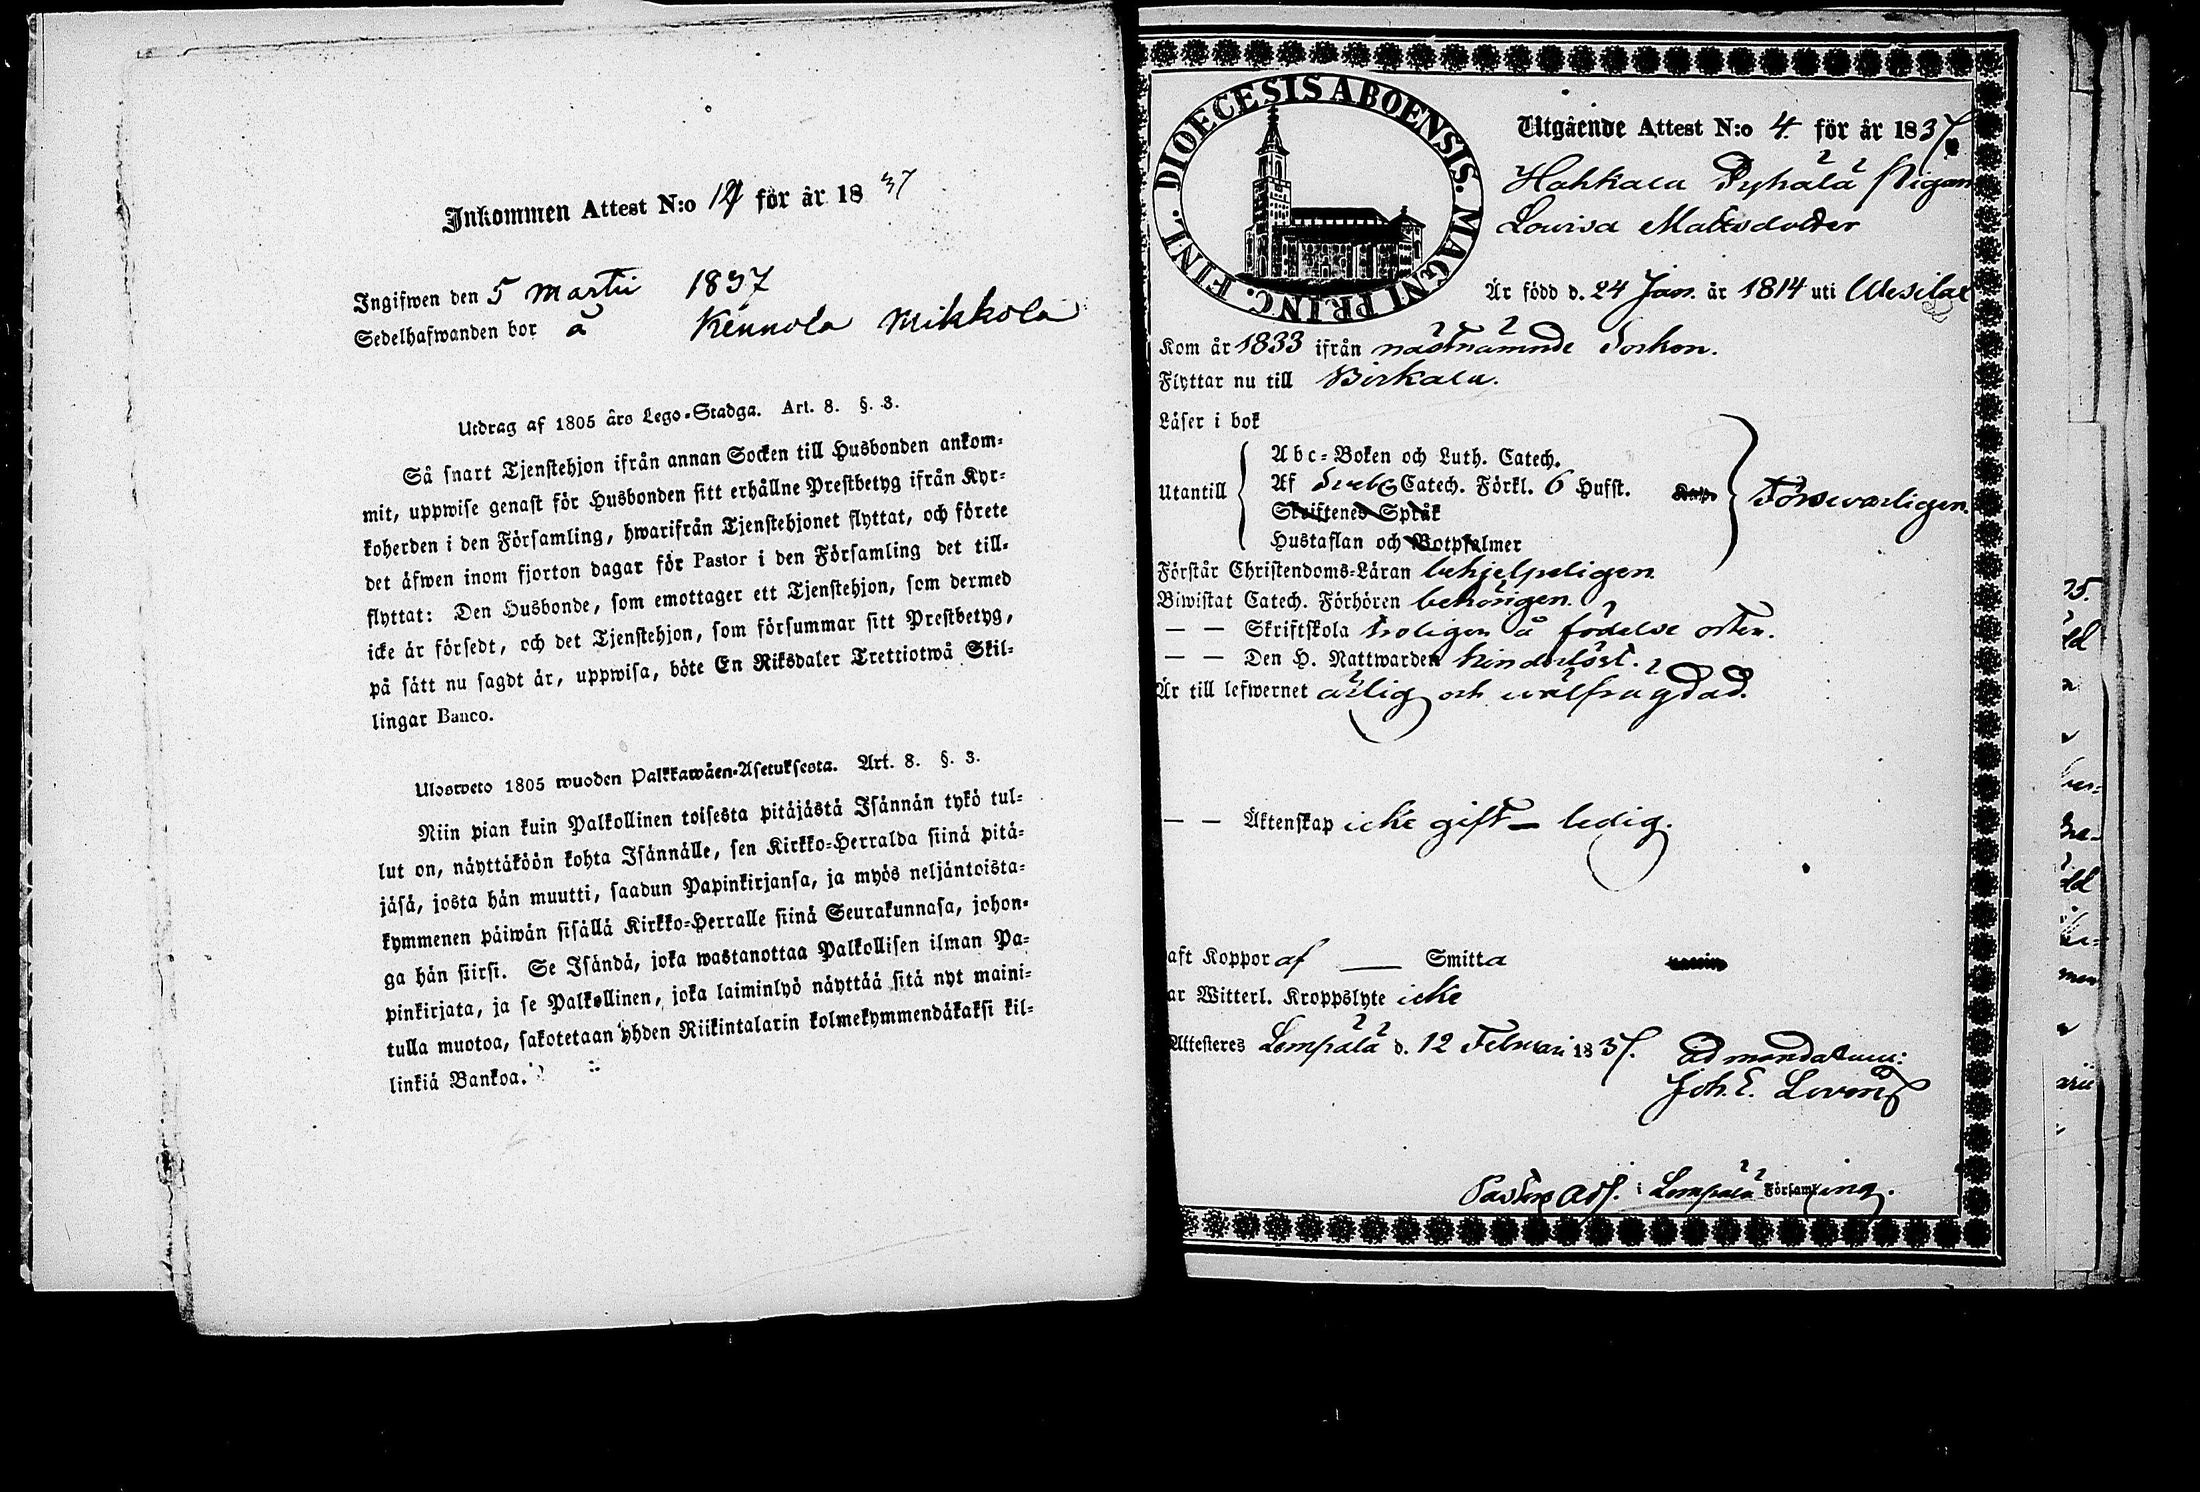 Inkommen Attest N:o 19 för år 1837
Ingifwen den 5 Martii 1837
Sedelhafwanden bor å Kennola Mikkola
Utdrag af 1805 års Lego-Stadga. Art. 8. §. 3.
Så snart Tjenstehjon ifrån annan Socken till Husbonden ankom-
mit, uppwise genast för Husbonden sitt erhållne Prestbetyg ifrån Kyr-
koherden i den Församling, hwarifrån Tjenstehjonet flyttat, och förete
det äfwen inom fjorton dagar för Pastor i den Församling det till-
flyttat: Den Husbonde, som emottager ett Tjenstehjon, som dermed
icke är försedt, och det Tjenstehjon, som försummar sitt Prestbetyg,
på sätt nu sagdt är, uppwisa, böte En Riksdaler Trettiotwå Skil-
lingar Banco.
Ulosweto 1805 wuoden Palkkawäen-Asetuksesta. Art. 8. §. 3.
Niin pian kuin Palkollinen toisesta pitäjästä Isännän tykö tul-
lut on, näyttäköön kohta Isännälle, sen Kirkko-Herralda siinä pitä-
jäsä, josta hän muutti, saadun Papinkirjansa, ja myös neljäntoista-
kymmenen päiwän sisällä Kirkko-Herralle siinä Seurakunnasa, johon-
ga hän siirsi. Se Isändä, joka wastanottaa Palkollisen ilman Pa-
pinkirjata, ja se Palkollinen, joka laiminlyö näyttää sitä nyt maini-
tulla muotoa, sakotetaan yhden Riikintalarin kolmekymmendäkaksi kil-
linkiä Bankoa.
DIOECESIS ABOENSIS. MAGNI PRINC. FINL.
Utgående Attest N:o 4. för år 1837.
Hakkala Pyhälä Pigan
Lovisa Mattsdotter
Är född d. 24 Jan. år 1814 uti Wesilax
Kom år 1833 ifrån nästnämnde Socken.
Flyttar nu till Birkala.
Läser i bok
Utantill
Abc-Boken och Luth. Catech.
Af Sveb Catech. Förkl. 6 Hufst.
Skriftenes Språk
Hustaflan och Botpsalmer
Försvarligen.
Förstår Christendoms-Läran behjelpeligen.
Biwistat Catech. Förhören behörigen.
— — Skriftskola troligen å födelse orten.
— — Den H. Nattwarden hinderlöst.
Är till lefwernet ärlig och wälfrägdad.
— — Äktenskap icke gift – ledig.
aft Koppor af — Smitta
ar Witterl. Kroppslyte icke
Attesteres Lempälä d. 12 Februari 1837. Ad mandatum:
Joh. E. Loven
Pastors Adj. i Lempälä Församling.